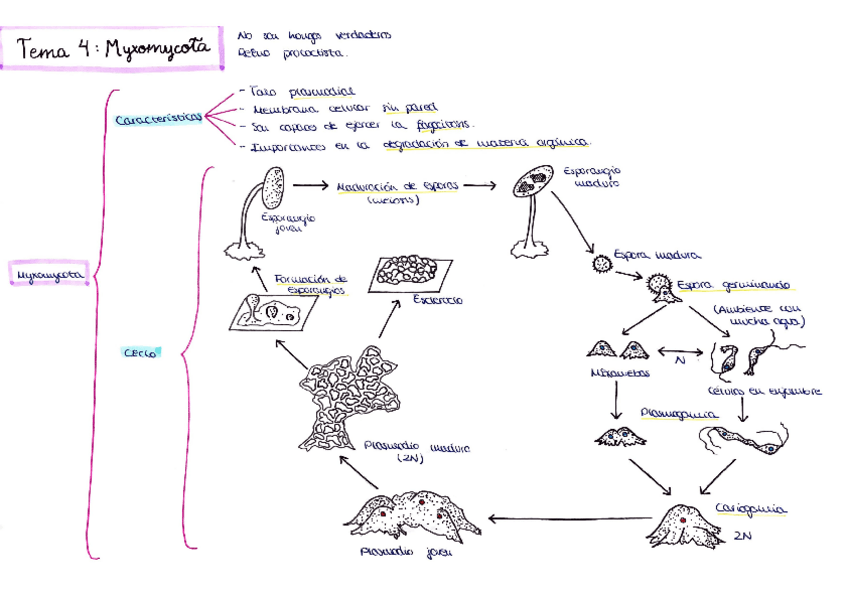 Tema 4: Myxomycota
No son hongos verdaderos
Reino protoctista.
Características
- Talo plasmodial
- Membrana celular sin pared
- Son capaces de ejercer la fagocitosis.
- Importantes en la degradación de materia orgánica.
Myxomycota
Ciclo
Esporangio
joven
Maduración de esporas
(meiosis)
Esporangio
maduro
Espora madura
Espora germinando
(Ambiente con
mucha agua)
Formación de
esporangios
Esclerocio
Mixamebas
N
Células en enjambre
Plasmogamia
Plasmodio maduro
(2N)
Cariogamia
2N
Plasmodio joven